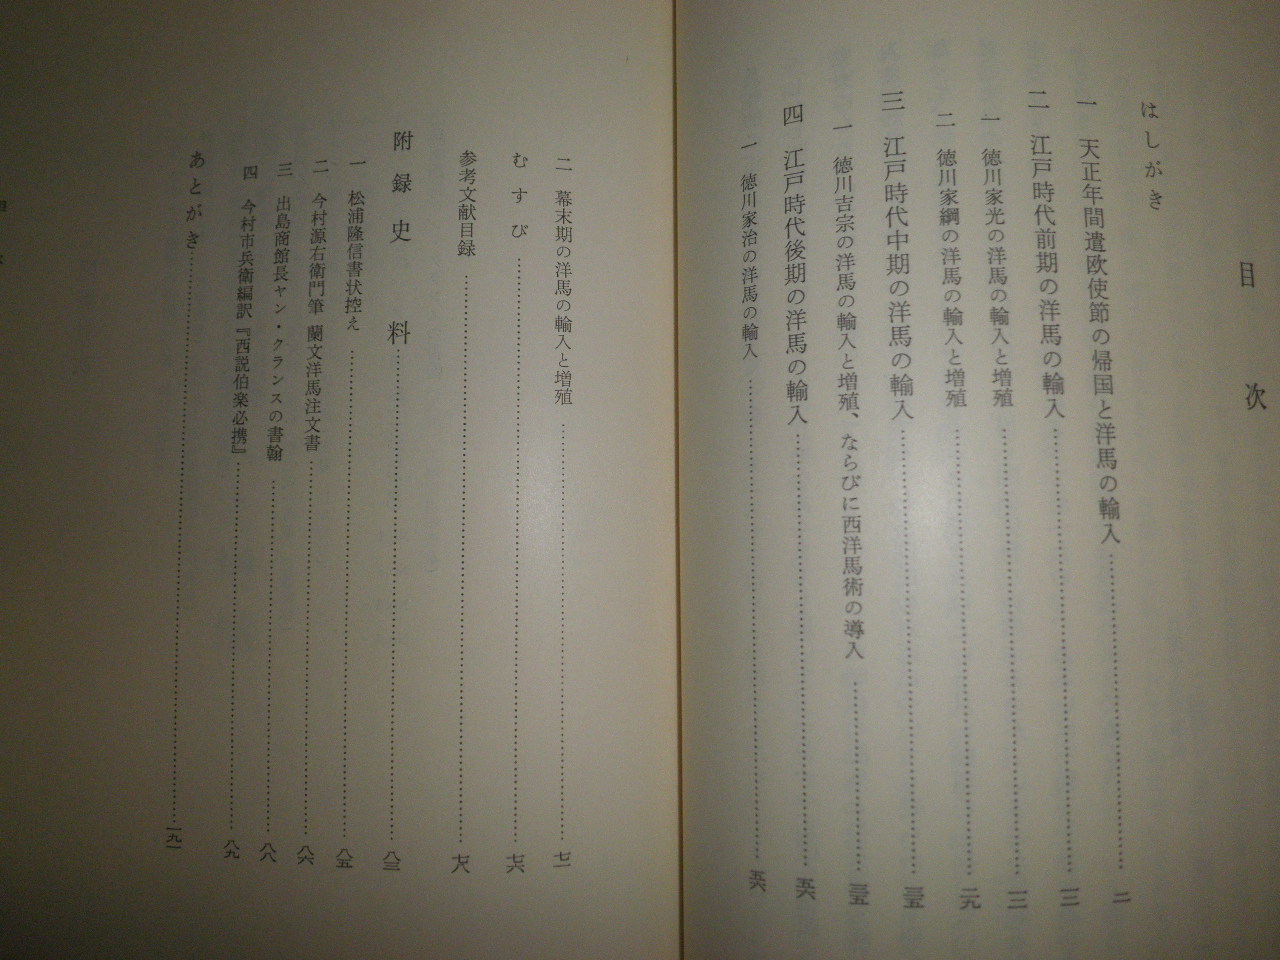 目次
はしがき
一 天正年間遣欧使節の帰国と洋馬の輸入 二
二 江戸時代前期の洋馬の輸入 一三
一 徳川家光の洋馬の輸入と増殖 一三
二 徳川家綱の洋馬の輸入と増殖 二九
三 江戸時代中期の洋馬の輸入 三五
一 徳川吉宗の洋馬の輸入と増殖、ならびに西洋馬術の導入 三五
四 江戸時代後期の洋馬の輸入 五六
一 徳川家治の洋馬の輸入 五六
二 幕末期の洋馬の輸入と増殖 七二
むすび 七六
参考文献目録 七八
附録史料 八三
一 松浦隆信書状控え 八五
二 今村源右衛門筆 蘭文洋馬注文書 八六
三 出島商館長ヤン・クランスの書翰 八八
四 今村市兵衛編訳『西説伯楽必携』 八九
あとがき 一九一